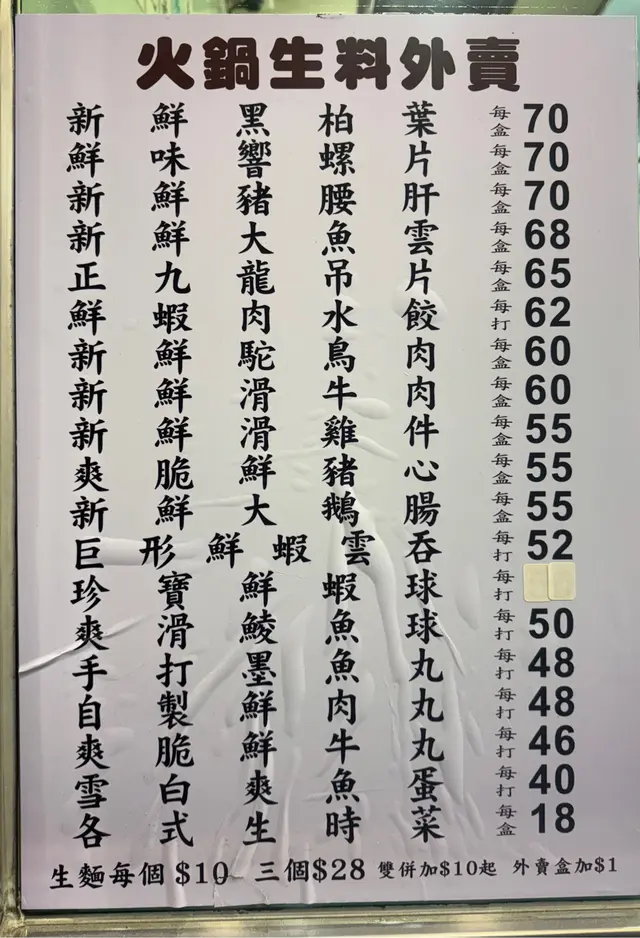 火鍋生料外賣
新鮮黑柏葉 每盒 70
鮮味響螺片 每盒 70
新鮮豬腰肝 每盒 70
新鮮大魚雲 每盒 68
正九龍吊片 每盒 65
鮮蝦肉水餃 每打 62
新鮮駝鳥肉 每盒 60
新鮮滑牛肉 每盒 60
新鮮滑雞件 每盒 55
爽脆鮮豬心 每盒 55
新鮮大鵝腸 每盒 55
巨形鮮蝦雲吞 每打 52
珍寶鮮蝦球 每打
爽滑鯪魚球 每打 50
手打墨魚丸 每打 48
自製鮮肉丸 每打 48
爽脆鮮牛丸 每打 46
雪白爽魚蛋 每打 40
各式生時菜 每盒 18
生麵每個 $10 三個$28 雙併加$10起 外賣盒加$1